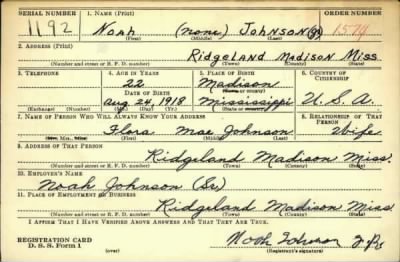 SERIAL NUMBER 1. NAME (Print) ORDER NUMBER
1192 NOAH (none) JOHNSON (Jr) 1579
(First) (Middle) (Last)
2. ADDRESS (Print)
Ridgeland Madison Miss
(Number and street or R. F. D. number) (Town) (County) (State)
3. TELEPHONE 4. AGE IN YEARS 5. PLACE OF BIRTH 6. COUNTRY OF CITIZENSHIP
22 Madison
DATE OF BIRTH (Town or county)
Aug. 24, 1918 Mississippi U. S. A.
(Exchange) (Number) (Mo.) (Day) (Yr.) (State or country)
7. NAME OF PERSON WHO WILL ALWAYS KNOW YOUR ADDRESS 8. RELATIONSHIP OF THAT PERSON
Flora Mae Johnson Wife
(Mr., Mrs., Miss) (First) (Middle) (Last)
9. ADDRESS OF THAT PERSON
Ridgeland Madison Miss.
(Number and street or R. F. D. number) (Town) (County) (State)
10. EMPLOYER'S NAME
Noah Johnson (Sr.)
11. PLACE OF EMPLOYMENT OR BUSINESS
Ridgeland Madison Miss
(Number and street or R. F. D. number) (Town) (County) (State)
I AFFIRM THAT I HAVE VERIFIED ABOVE ANSWERS AND THAT THEY ARE TRUE.
REGISTRATION CARD Noah Johnson Jr.
D. S. S. Form 1 (over) (Registrant's signature)